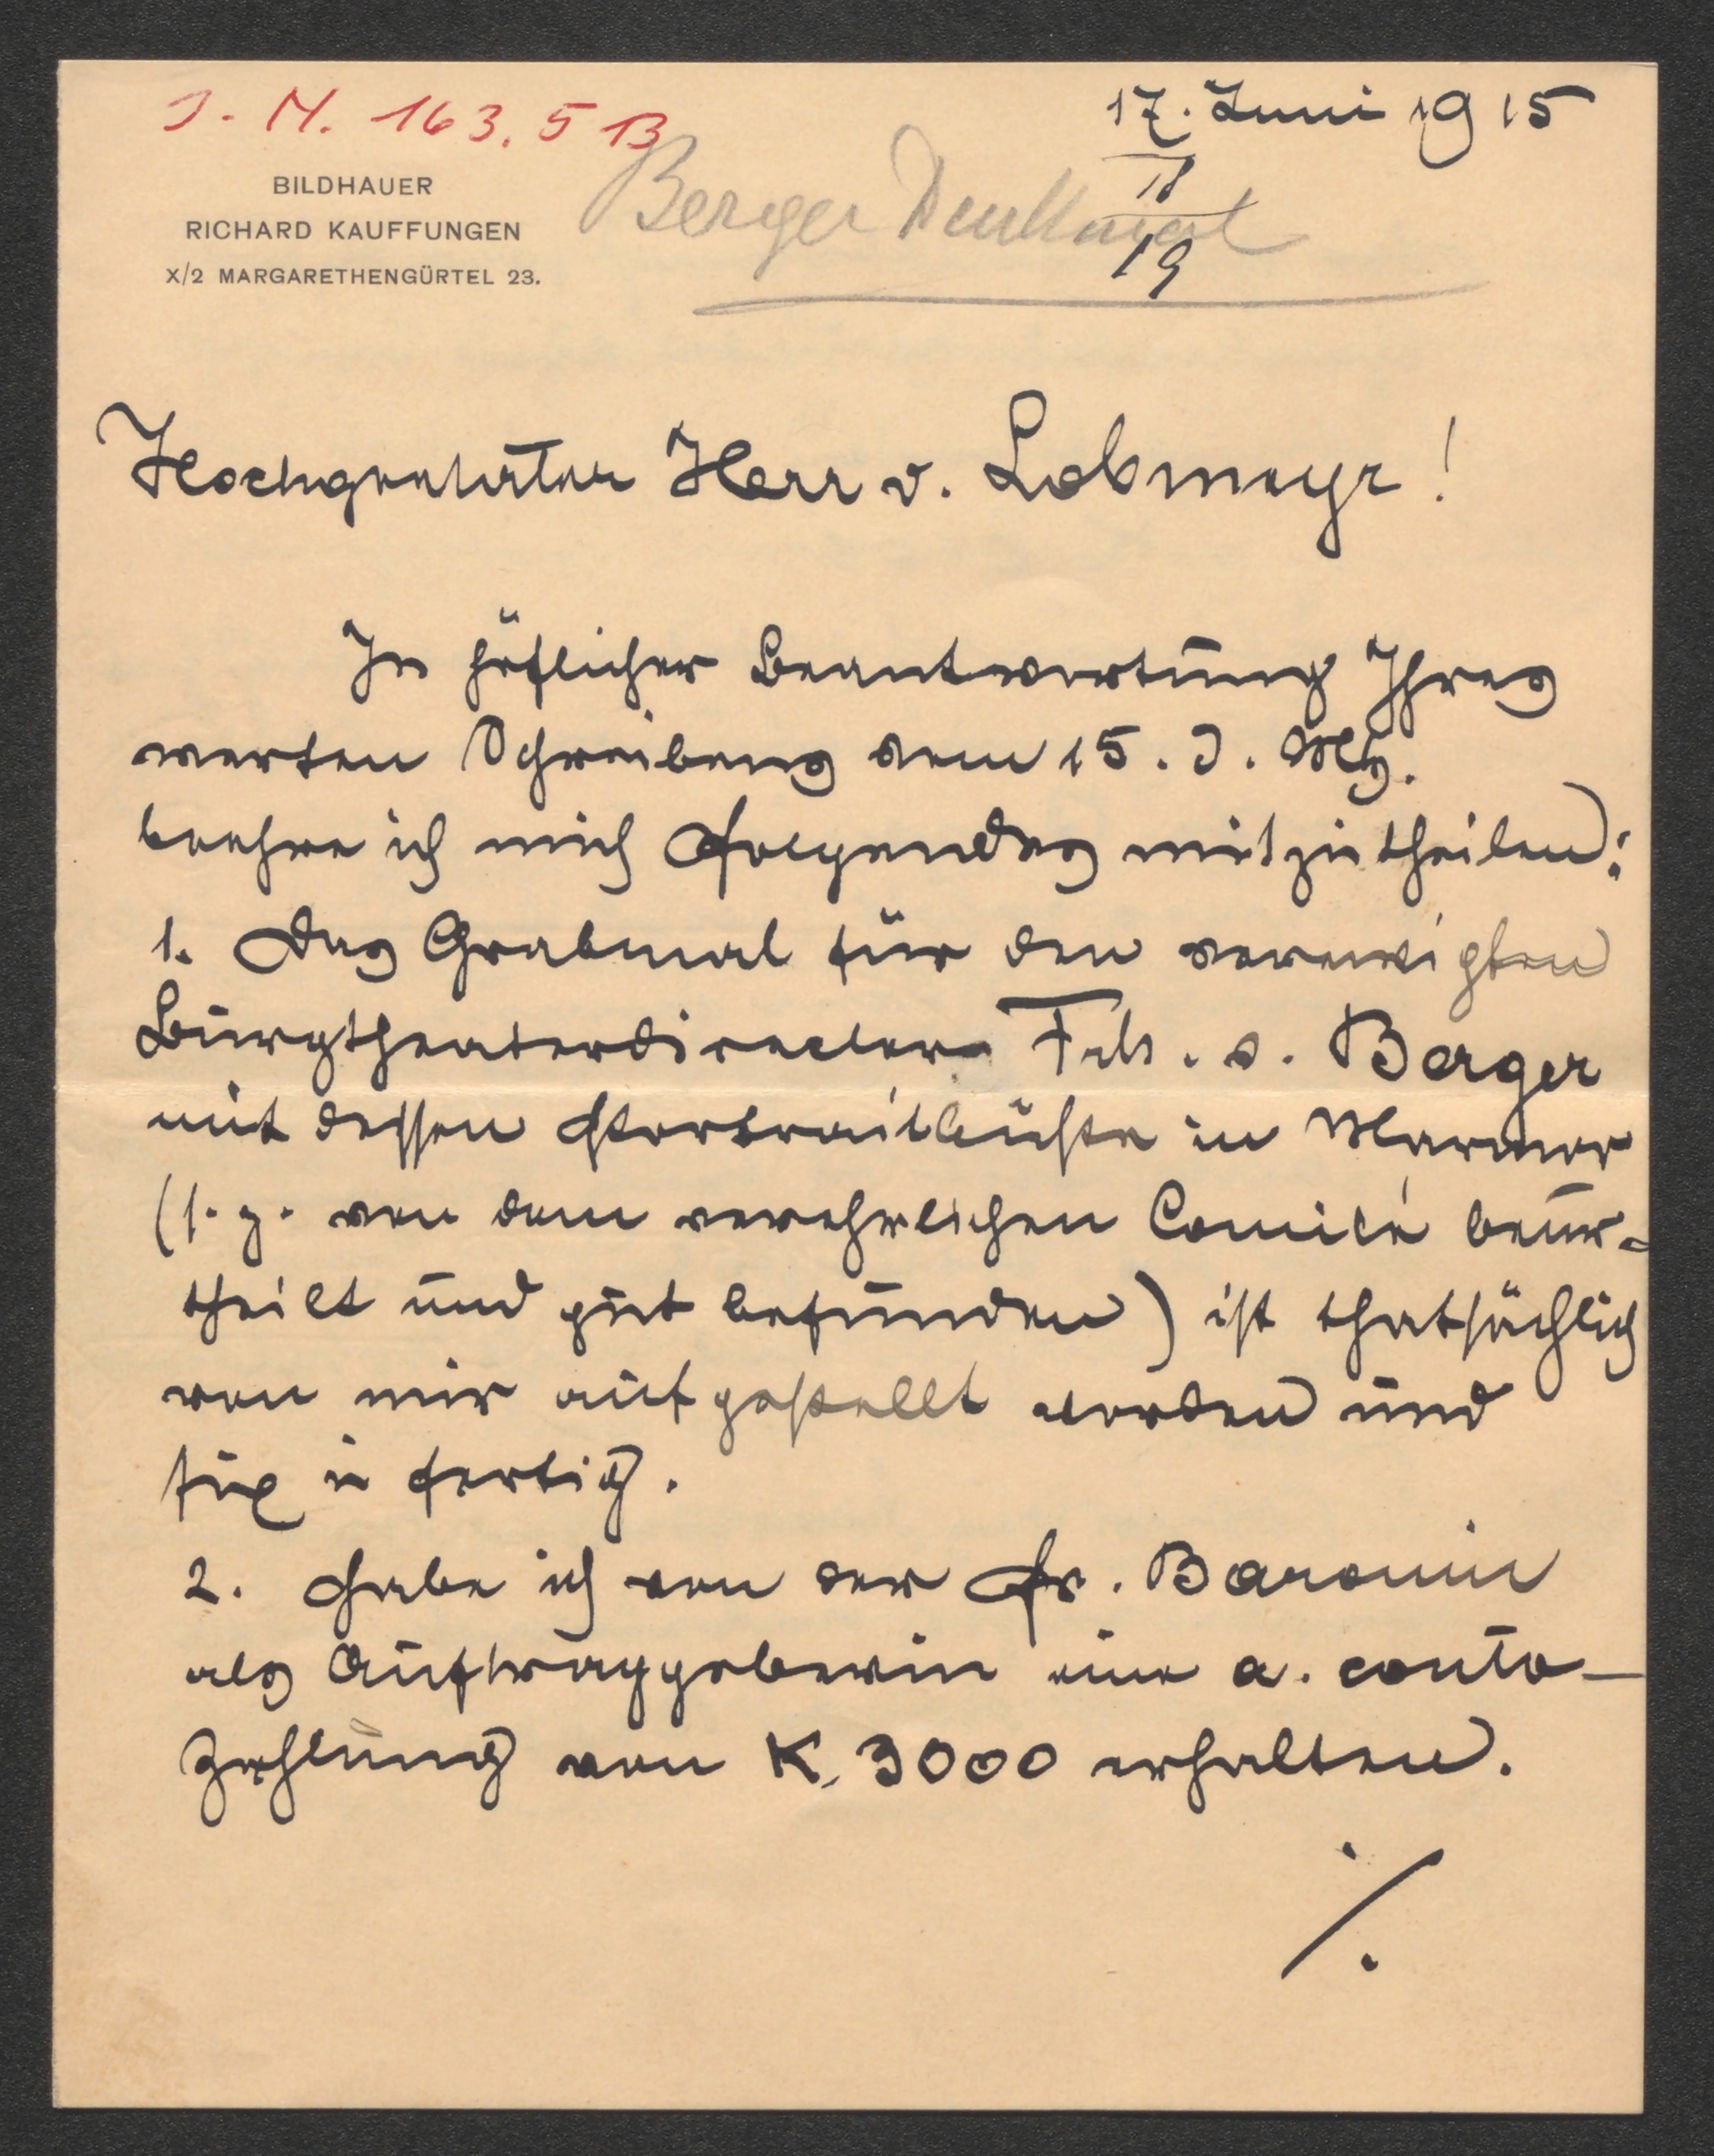 J. N. 163.513
17. Juni 1915
18
19
Berger Denkmal
BILDHAUER
RICHARD KAUFFUNGEN
X/2 MARGARETHENGÜRTEL 23.
Hochgeehrter Herr v. Lobmeyr!
In höflicher Beantwortung Ihres
werten Schreibens vom 15. d. Mts.
beehre ich mich Folgendes mitzutheilen:
1. Das Grabmal für den verewigten
Burgtheaterdirector Frh. v. Berger
mit dessen Portraitbüste in Marmor
(s. z. von dem verehrlichen Comité beur-
theilt und gut befunden) ist thatsächlich
von mir aufgestellt worden und
fix u fertig.
2. Habe ich von der Fr. Baronin
als Auftraggeberin eine a. conto-
Zahlung von K. 3000 erhalten.
./.